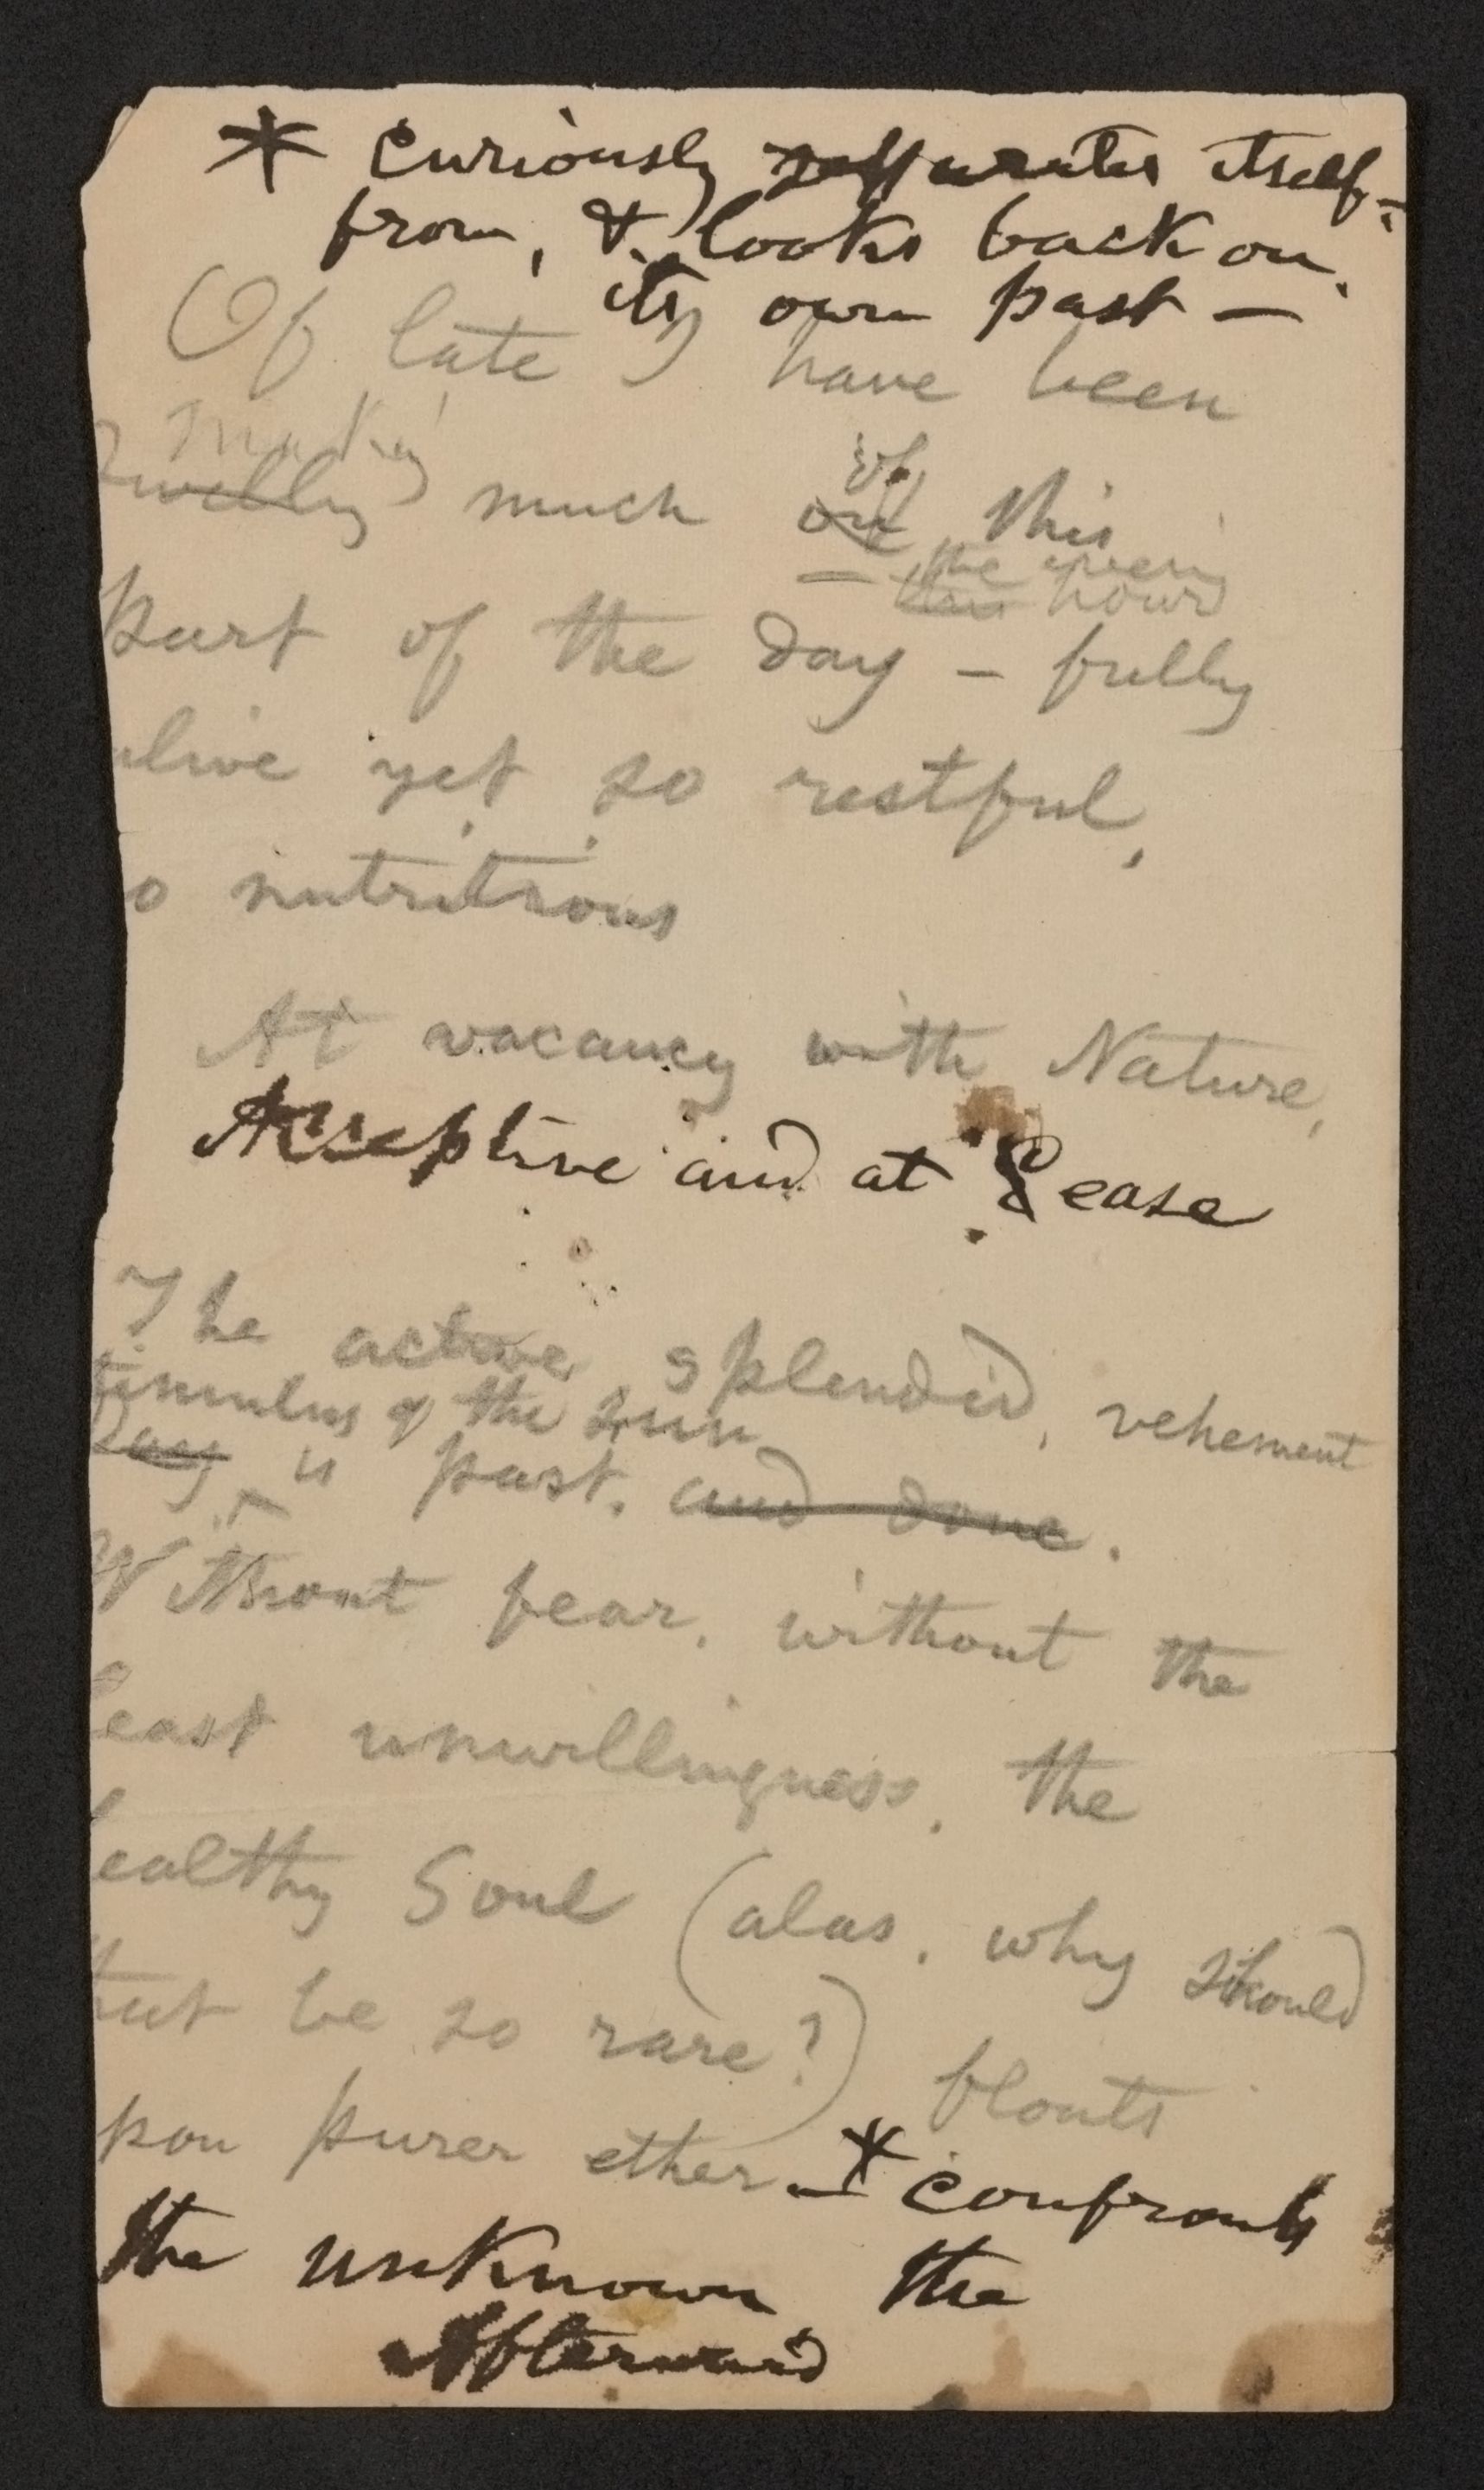 * Curiously separates itself
from, & looks back on,
its own past —
Of late I have been
making
dwelling much on of this
the even
this hour
part of the day — fully
alive yet so restful,
o nutritious
At vacancy with Nature,
Acceptive and at ease
The active splendid, vehement
timulus of the sun
Day is past. and done.
Without fear, without the
least unwillingness, the
ealthy Soul (alas, why should
that be so rare?) floats
pon purer ether — * confronts
the unknown the
Afterward